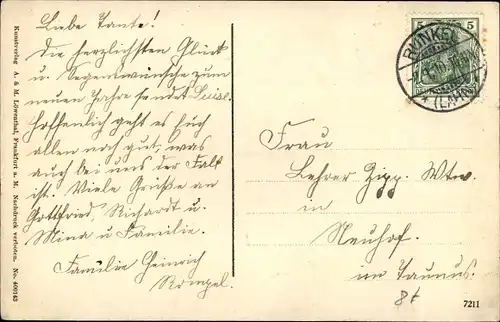 Liebe Tante!
Die herzlichsten Glück
u. Segenwünsche zum
neuen Jahre sendet Luise.
Hoffenlich geht es Euch
allen noch gut, was
auch bei uns der Fall
ist. Viele Grüße an
Gottfried, Richardt u.
Mina u. Familie.
Familie Heinrich
Römpel.
Kunstverlag A. & M. Löwenthal, Frankfurt a. M. Nachdruck verboten. No. 400163
5 5
RUNKEL
(LAHN)
Frau
Lehrer Zipp. Wtw.
in
Neuhof.
im Taunus.
8t
7211